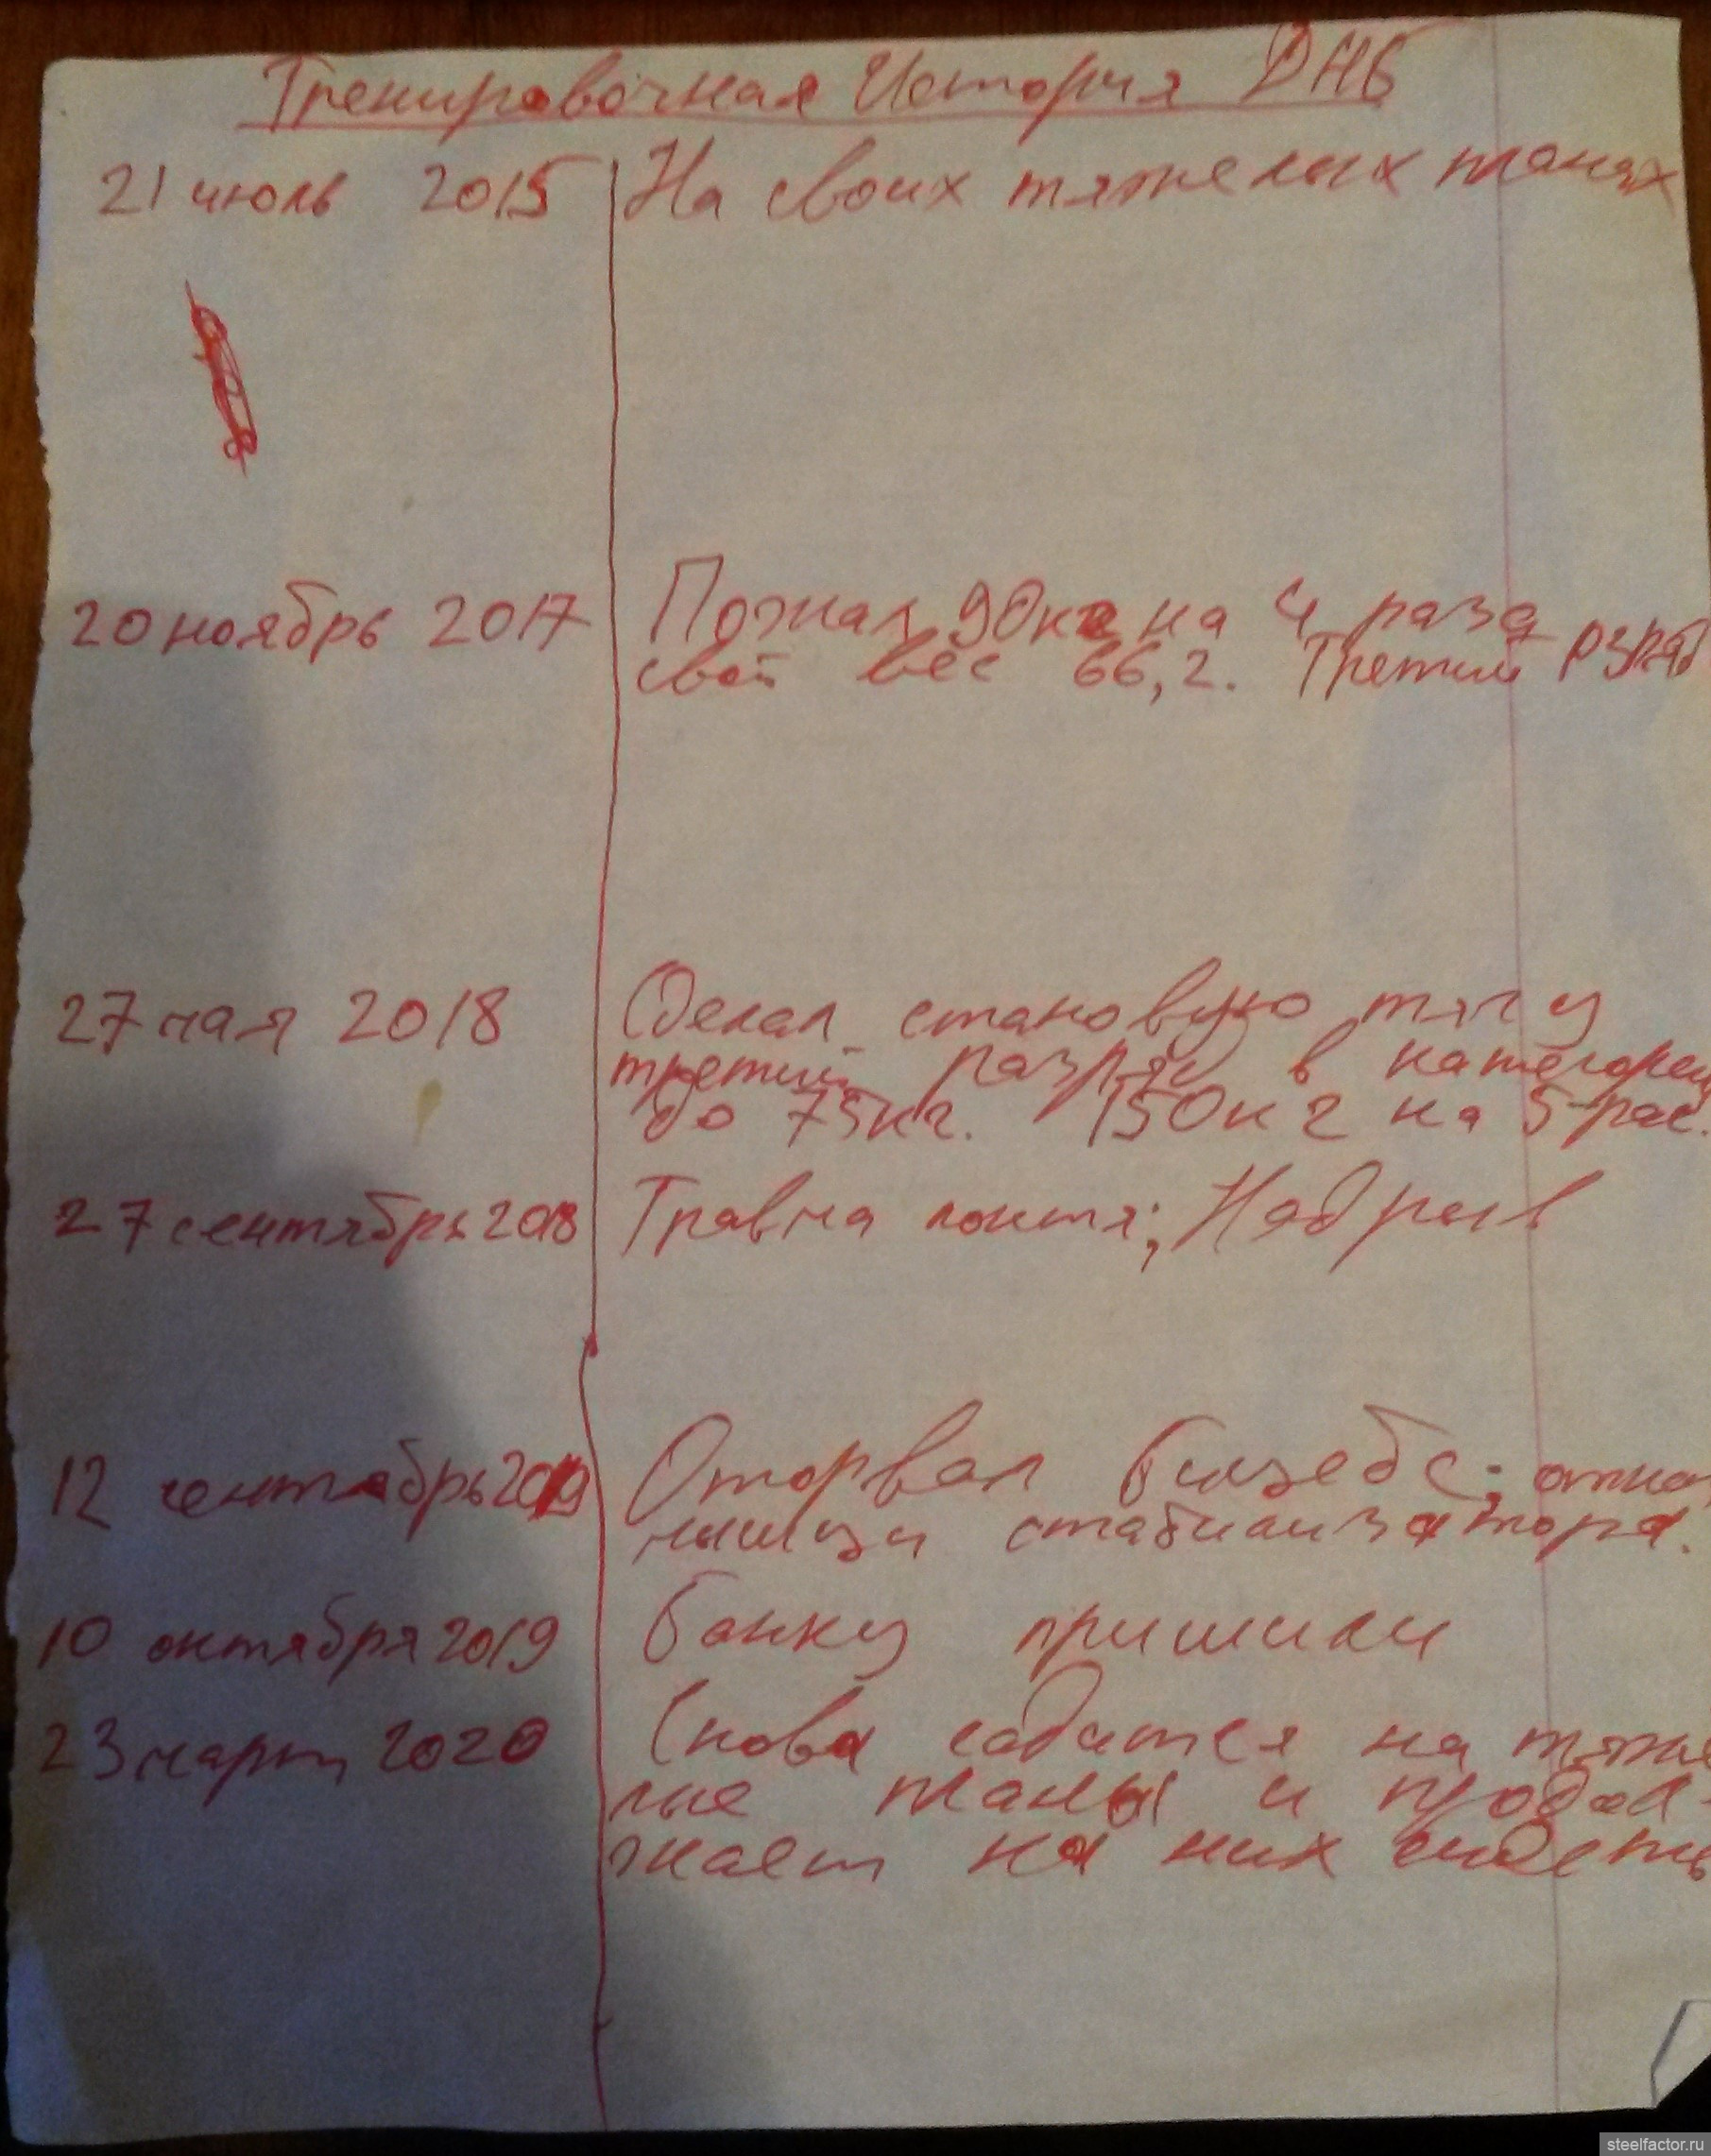 Тренировочная История ДНБ
21 июль 2015 На своих тяжелых планах
20 ноябрь 2017 Пожал 90кг на 4 раза
свой вес 66,2. Третий
27 мая 2018 Сделал становую тягу
третий разряд в категории
до 75кг. 150кг на 5 рас.
27 сентябрь 2018 Травма локтя; Надрыв
12 сентябрь 2019 Оторвал бицебс;
мышцы стабилизатора.
10 октября 2019 банку пришили
23 март 2020 Снова садится на тяже
лые планы и продол-
жает на них сидеть
steelfactor.ru